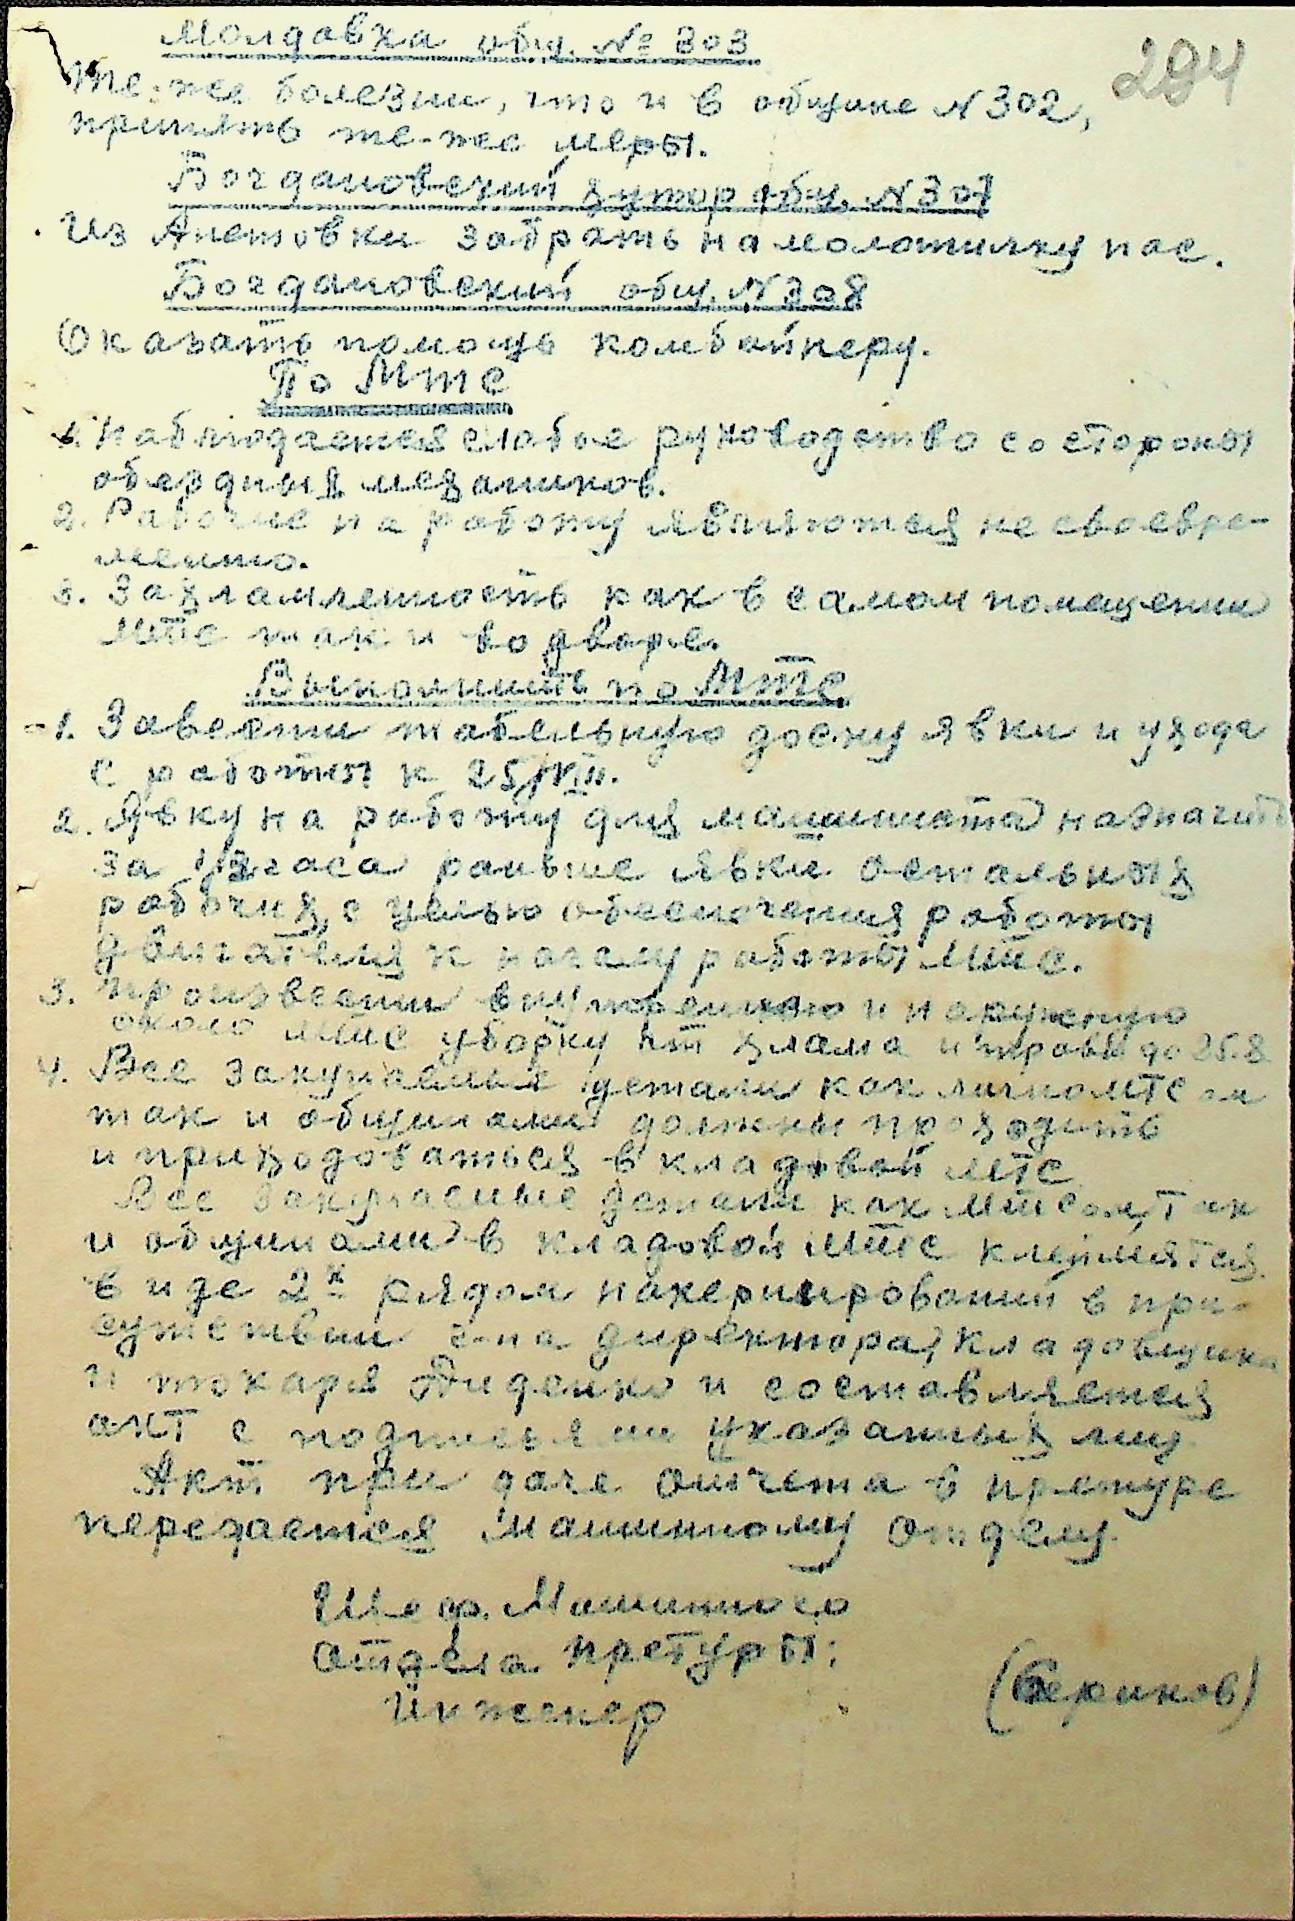 Молдавка общ. № 303
294
Те-же болезни, что и в общине N 302,
принять те-же меры.
Богдановский хутор общ. N 307
Из Апетовки забрать на молотилку пас.
Богдановский общ. N 308
Оказать помощь комбайнеру.
По МТС
1. Наблюдается слабое руководство со стороны
объездных механиков.
2. Рабочие на работу являются не своевре-
менно.
3. Захламленность как в самом помещении
МТС так и во дворе.
Выполнить по МТС
1. Завести табельную доску явки и ухода
с работы к 25/VIII.
2. Явку на работу для машиниста назначить
за 1/2 часа раньше явки остальных
рабочих, с целью обеспечения работы
двигателя к началу работы МТС.
3. Произвести внутреннюю и наружную
около МТС уборку от хлама и травы до 25.8
4. Все закупаемые детали как лично МТС ом
так и общинами должны проходить
и приходоваться в кладовой МТС
Все закупаемые детали как МТСом, так
и общинами в кладовой МТС клеймятся
в иде 2х рядом накернирований в при-
сутствии г-на директора, кладовщика
и токаря Диденко и составляется
акт с подписями указанных лиц.
Акт при даче отчета в претуре
передается Машинному отделу.
Шеф. Машинного
отдела претуры:
Инженер
(Бериков)